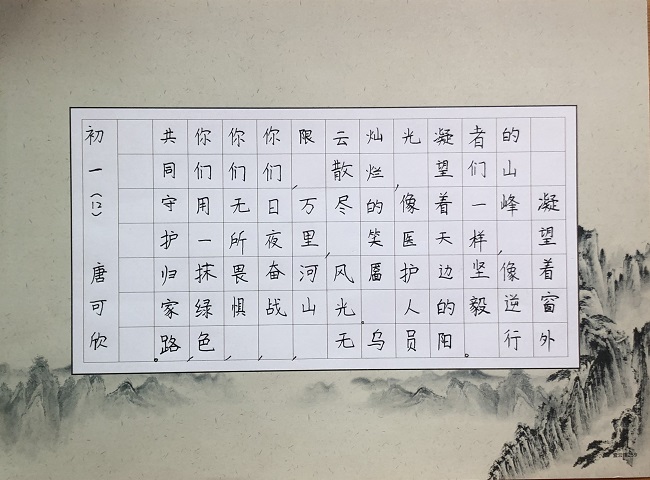 凝望着窗外
的山峰，像逆行
者们一样坚毅。
凝望着天边的阳
光，像医护人员
灿烂的笑靥。乌
云散尽，风光无
限，万里河山，
你们日夜奋战，
你们无所畏惧，
你们用一抹绿色，
共同守护归家路。
初一（12） 唐可欣